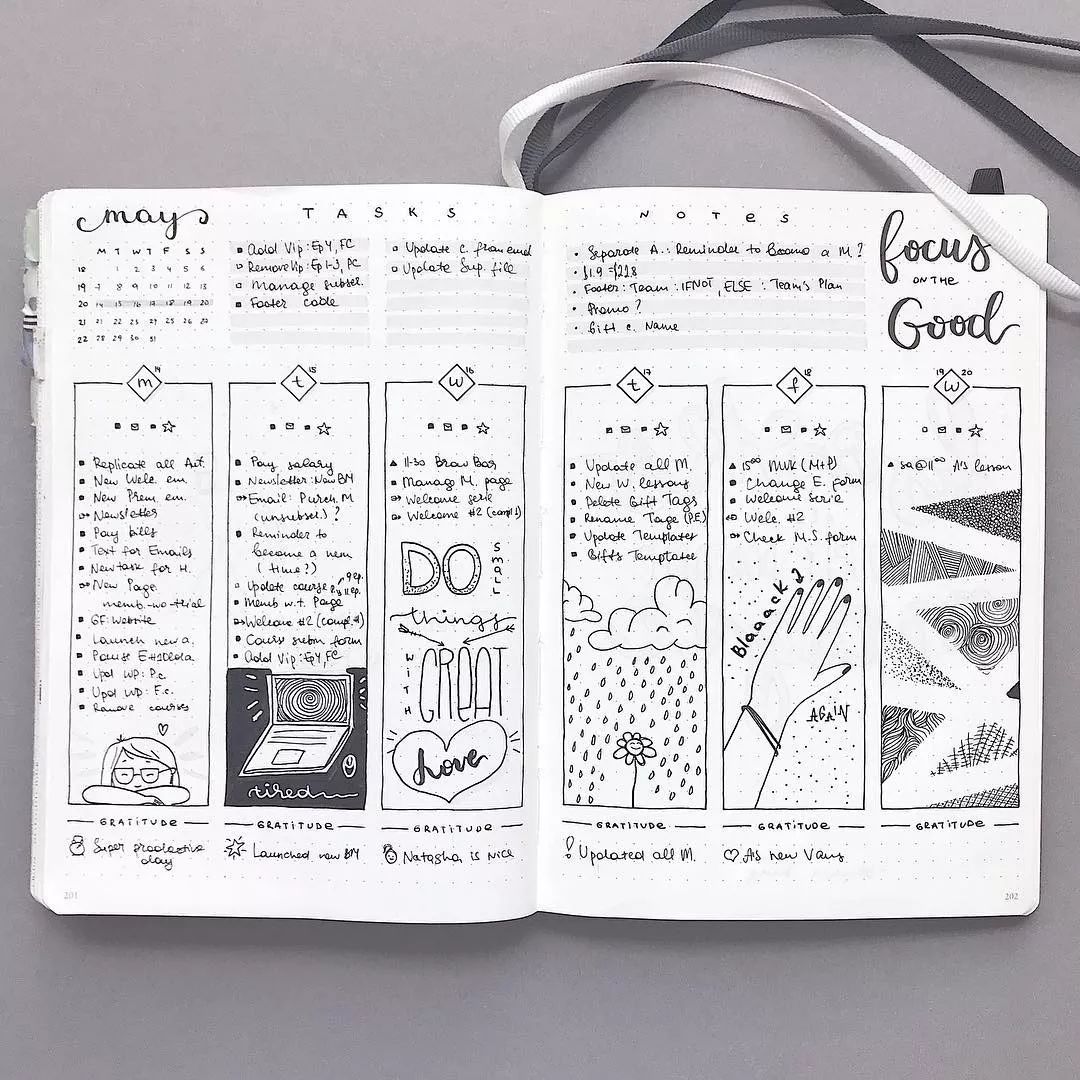 may
M T W T F S S
18 1 2 3 4 5 6
19 7 8 9 10 11 12 13
20 14 15 16 17 18 19 20
21 21 22 23 24 25 26 27
22 28 29 30 31
TASKS
Add Vip: Ep4, FC
Remove Vip: Ep 1-3, PC
Manage subscr.
Footer Code
Update C. from email
Update Sup. file
NOTES
Separate A.: Reminder to Become a M?
Footer: Team: IFNOT, ELSE: Team's Plan
Promo?
Gift c. Name
focus
ON THE
Good
m 14
Replicate all Aut.
New Welc. em.
New Prem. em.
Newsletter
Pay bills
Text for Emails
New task for H.
New Page
memb-wo-trial
GF: website
Launch new a.
Upd WP: P.c.
Upd WP: F.c.
Remove courses
GRATITUDE
Super productive
day
t 15
Pay salary
Newsletter: New BM
Email: Purch. M
(unsubscr.)?
Reminder to
become a mem
(time?)
Update course 9 ep. 11 ep.
Memb w.t. Page
Welcome #2 (compl.)
Course subm form
Add Vip: Ep4, FC
tired
GRATITUDE
Launched new BM
w 16
11-30 Brow Bar
Manage M. page
Welcome serie
Welcome #2 (compl)
DO
SMALL
things
WITH
GREAT
Love
GRATITUDE
Natasha is nice
t 17
Update all M.
New W. lessons
Delete Gift Tags
Rename Tags (P.E.)
Update Templates
Gifts Templates
GRATITUDE
Updated all M.
f 18
15⁰⁰ MUK (M+P)
Change E. form
Welcome serie
Welc. #2
Check M.S. form
Blaaack
AGAIN
GRATITUDE
A's new Vans
19 w 20
sa@11⁰⁰ A's lesson
GRATITUDE
201
202